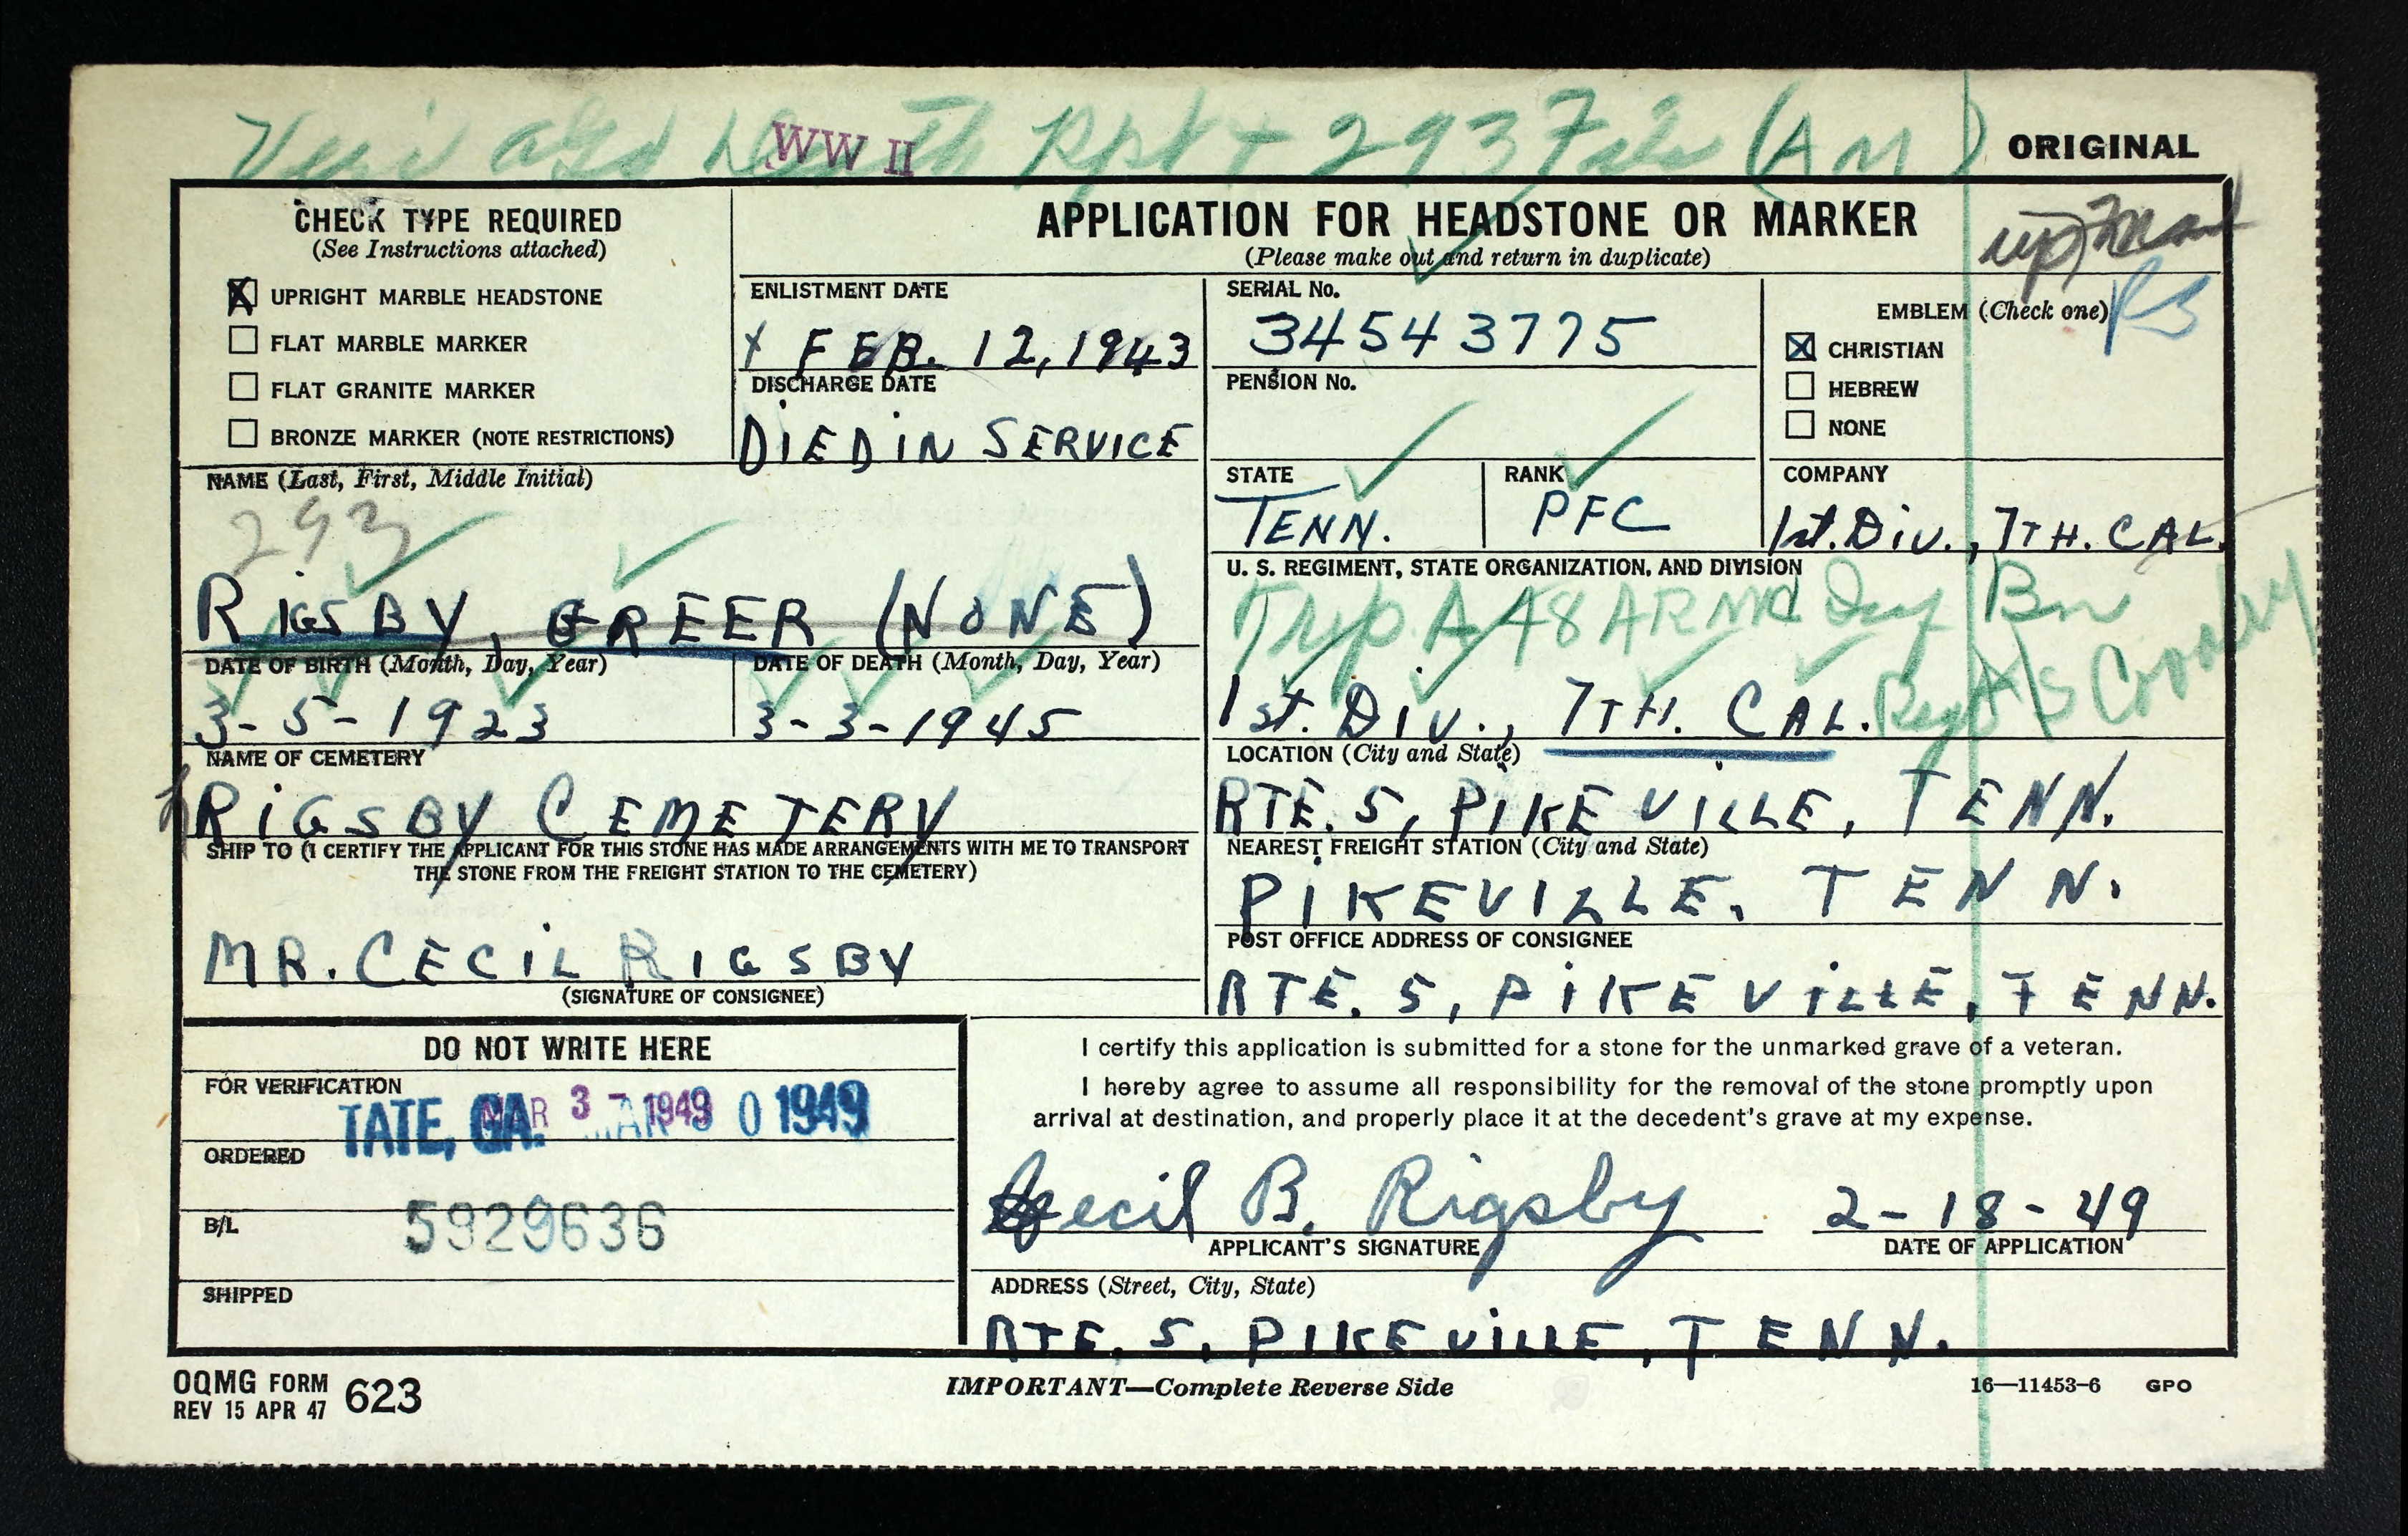 WW II
Rpt + 293 File (AM)
ORIGINAL
CHECK TYPE REQUIRED
(See Instructions attached)
X UPRIGHT MARBLE HEADSTONE
FLAT MARBLE MARKER
FLAT GRANITE MARKER
BRONZE MARKER (NOTE RESTRICTIONS)
APPLICATION FOR HEADSTONE OR MARKER
(Please make out and return in duplicate)
ENLISTMENT DATE
X FEB. 12, 1943
DISCHARGE DATE
DIED IN SERVICE
SERIAL No.
34543775
PENSION No.
EMBLEM (Check one)
RS
X CHRISTIAN
HEBREW
NONE
STATE
TENN.
RANK
PFC
COMPANY
1st. Div., 7TH. CAL.
NAME (Last, First, Middle Initial)
293
RIGSBY, GREER (NONE)
U. S. REGIMENT, STATE ORGANIZATION, AND DIVISION
Trp A 48 ARMD Inf Bn
1st. Div., 7TH. CAL.
DATE OF BIRTH (Month, Day, Year)
3-5-1923
DATE OF DEATH (Month, Day, Year)
3-3-1945
NAME OF CEMETERY
RIGSBY CEMETERY
LOCATION (City and State)
RTE. 5, PIKEVILLE, TENN.
SHIP TO (I CERTIFY THE APPLICANT FOR THIS STONE HAS MADE ARRANGEMENTS WITH ME TO TRANSPORT
THE STONE FROM THE FREIGHT STATION TO THE CEMETERY)
MR. CECIL RIGSBY
(SIGNATURE OF CONSIGNEE)
NEAREST FREIGHT STATION (City and State)
PIKEVILLE, TENN.
POST OFFICE ADDRESS OF CONSIGNEE
RTE. 5, PIKEVILLE, TENN.
DO NOT WRITE HERE
FOR VERIFICATION
TATE, GA. MAR 3 - 1949 0 1949
ORDERED
B/L
5929636
SHIPPED
I certify this application is submitted for a stone for the unmarked grave of a veteran.
I hereby agree to assume all responsibility for the removal of the stone promptly upon
arrival at destination, and properly place it at the decedent's grave at my expense.
Cecil B. Rigsby 2-18-49
APPLICANT'S SIGNATURE DATE OF APPLICATION
ADDRESS (Street, City, State)
RTE. 5, PIKEVILLE, TENN.
OQMG FORM 623
REV 15 APR 47
IMPORTANT—Complete Reverse Side
16—11453-6 GPO